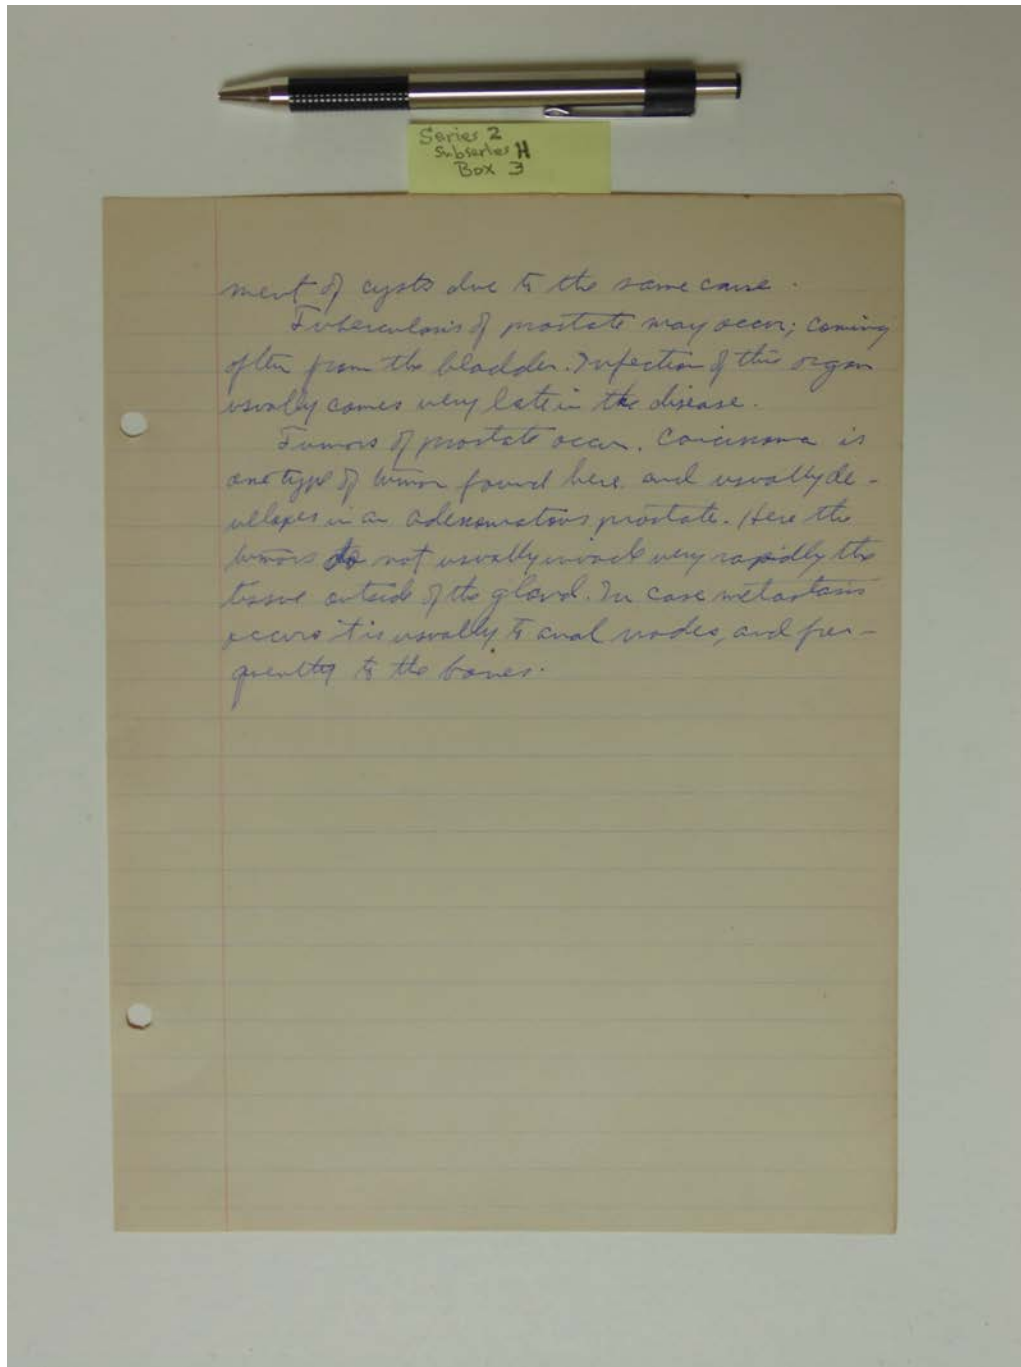 Series 2
Subseries H
Box 3
ment of cysts due to the same cause.
Tuberculosis of prostate may occur; coming
often from the bladder. Infection of this organ
usually comes very late in the disease.
Tumors of prostate occur. Carcinoma is
one type of tumor found here and usually de-
velopes in an adenomatous prostate. Here the
tumors do not usually invade very rapidly the
tissue outside of the gland. In case metastasis
occurs it is usually to anal nodes, and fre-
quently to the bones.